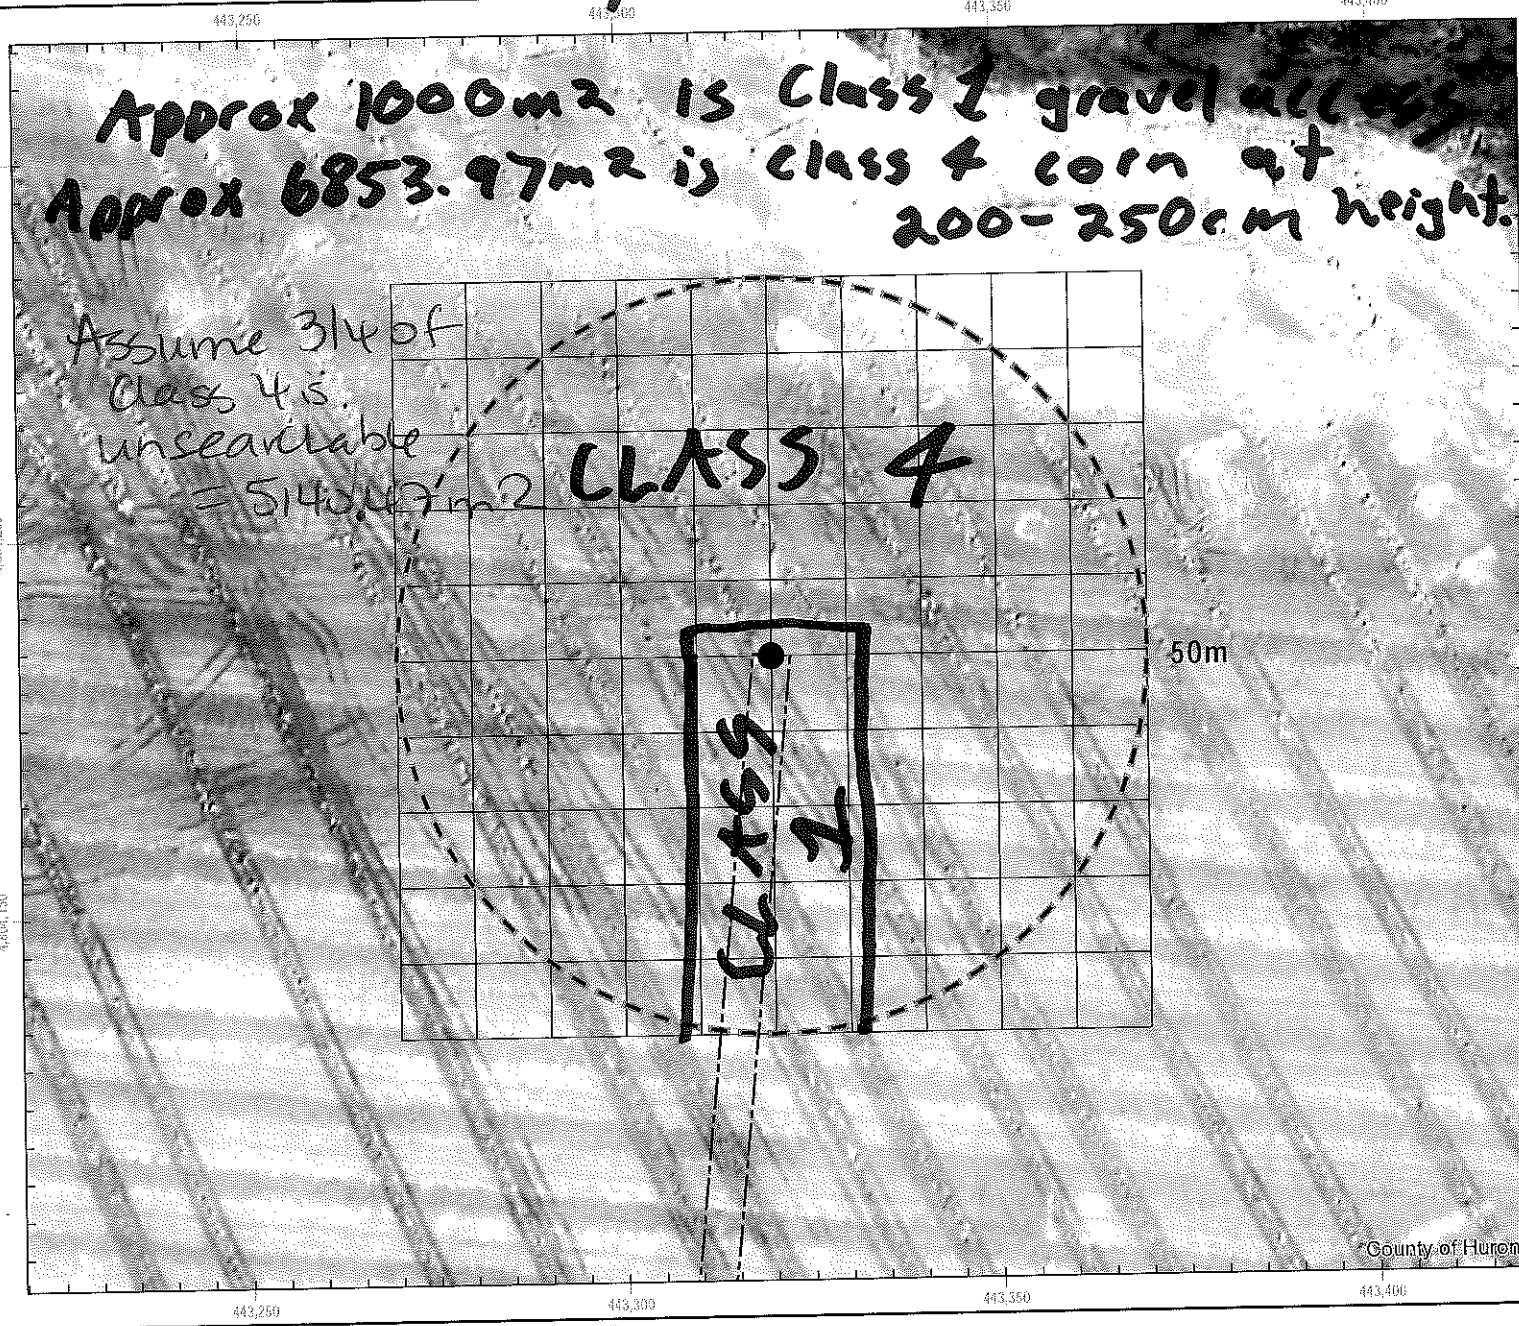 443,250 443,300 443,350
Approx 1000m2 is Class 1 gravel access
Approx 6853.97m2 is class 4 corn at
200-250cm height.
Assume 3/4 of
Class 4 is
unsearchable
= 5140.47m2
CLASS 4
50m
CLASS
1
County of Huron
443,250 443,300 443,350 443,400